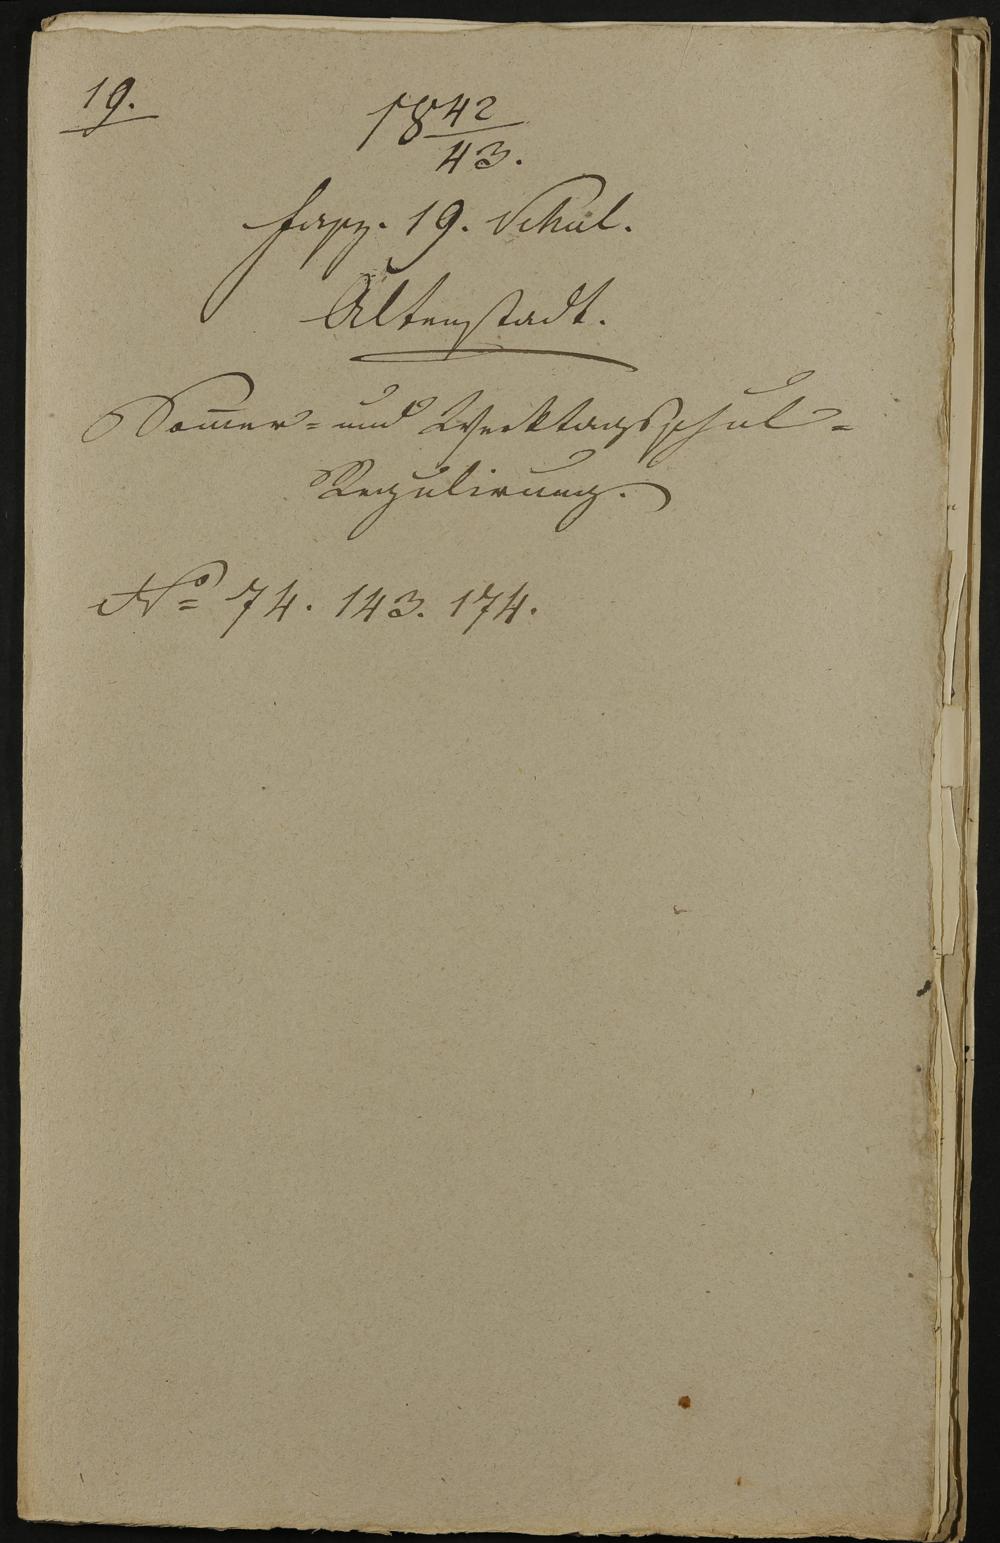 19.
1842/43.
Fasz. 19. Schul.
Altenstadt.
Som̅er= und Werktagsschul=
Regulirung.
No 74. 143. 174.